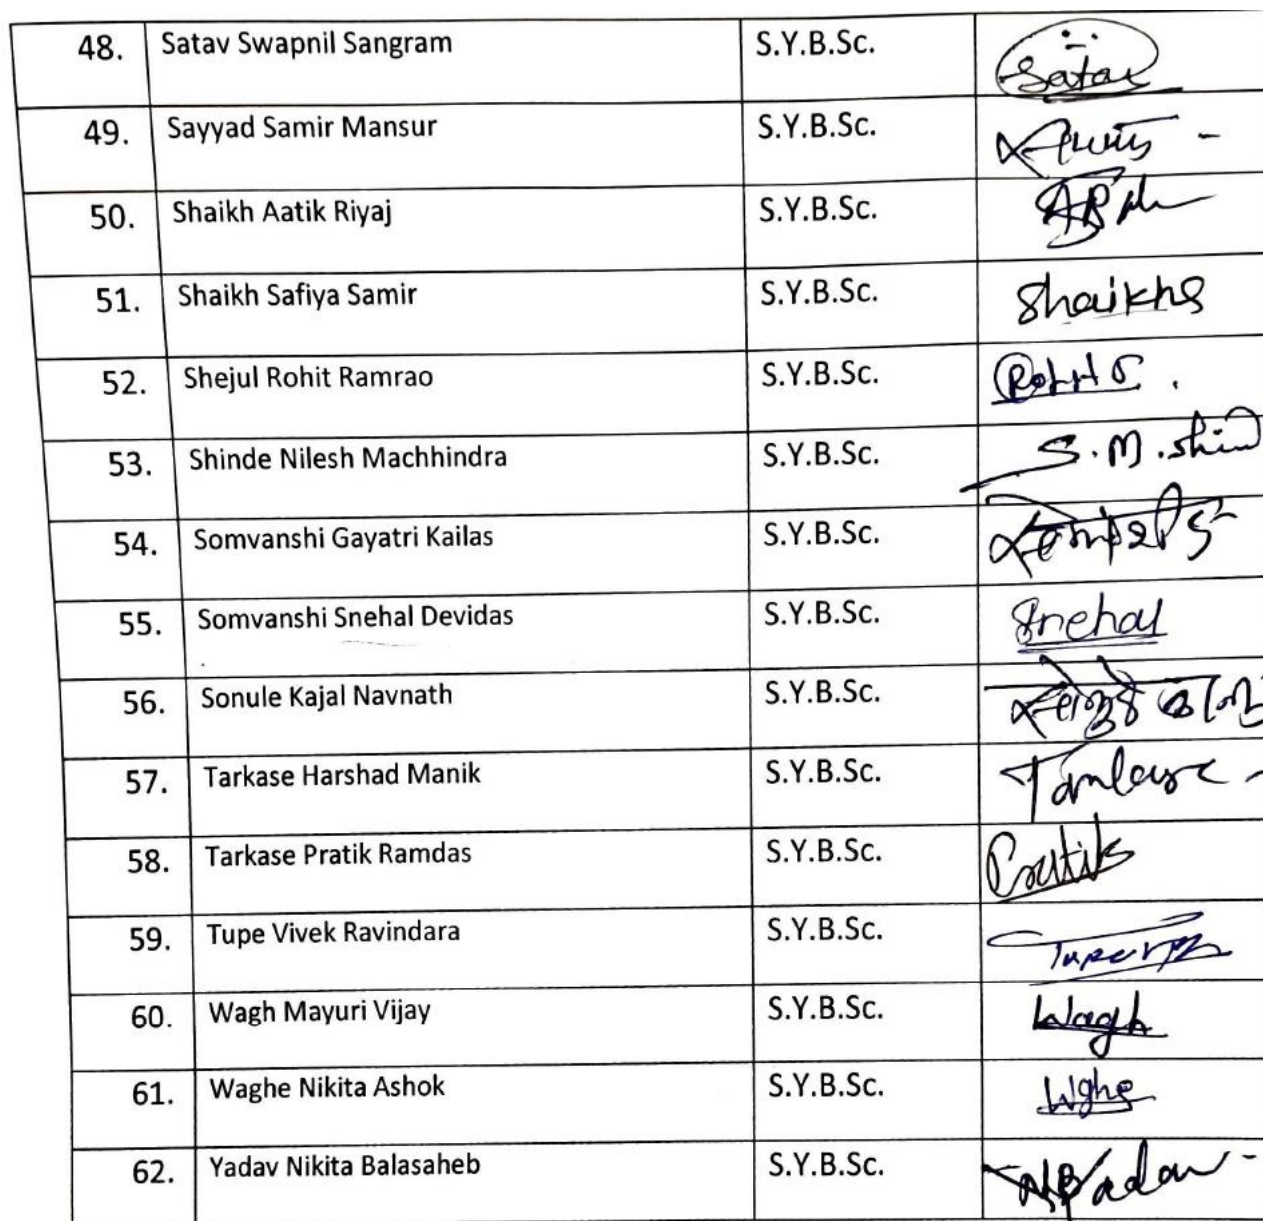 48. Satav Swapnil Sangram S.Y.B.Sc. Satav
49. Sayyad Samir Mansur S.Y.B.Sc.
50. Shaikh Aatik Riyaj S.Y.B.Sc.
51. Shaikh Safiya Samir S.Y.B.Sc. Shaikhs
52. Shejul Rohit Ramrao S.Y.B.Sc. Rohit S.
53. Shinde Nilesh Machhindra S.Y.B.Sc. S.M.Shind
54. Somvanshi Gayatri Kailas S.Y.B.Sc.
55. Somvanshi Snehal Devidas S.Y.B.Sc. Snehal
56. Sonule Kajal Navnath S.Y.B.Sc.
57. Tarkase Harshad Manik S.Y.B.Sc.
58. Tarkase Pratik Ramdas S.Y.B.Sc.
59. Tupe Vivek Ravindara S.Y.B.Sc.
60. Wagh Mayuri Vijay S.Y.B.Sc. Wagh
61. Waghe Nikita Ashok S.Y.B.Sc. Wghe
62. Yadav Nikita Balasaheb S.Y.B.Sc.